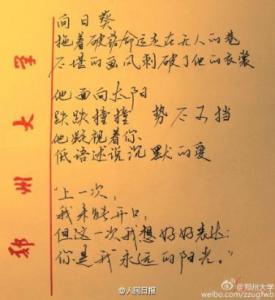 向日葵
拖着破落命运走在无人的巷
尽堪的画风刺破了他的衣裳
他面向太阳
跌跌撞撞 势不可挡
他凝视着你
低语述说沉默的爱
"上一次,
我未能开口,
但这一次我想好好表达:
你是我永远的阳光。"
郑州大学
@人民日报
@郑州大学
weibo.com/zzugfwb